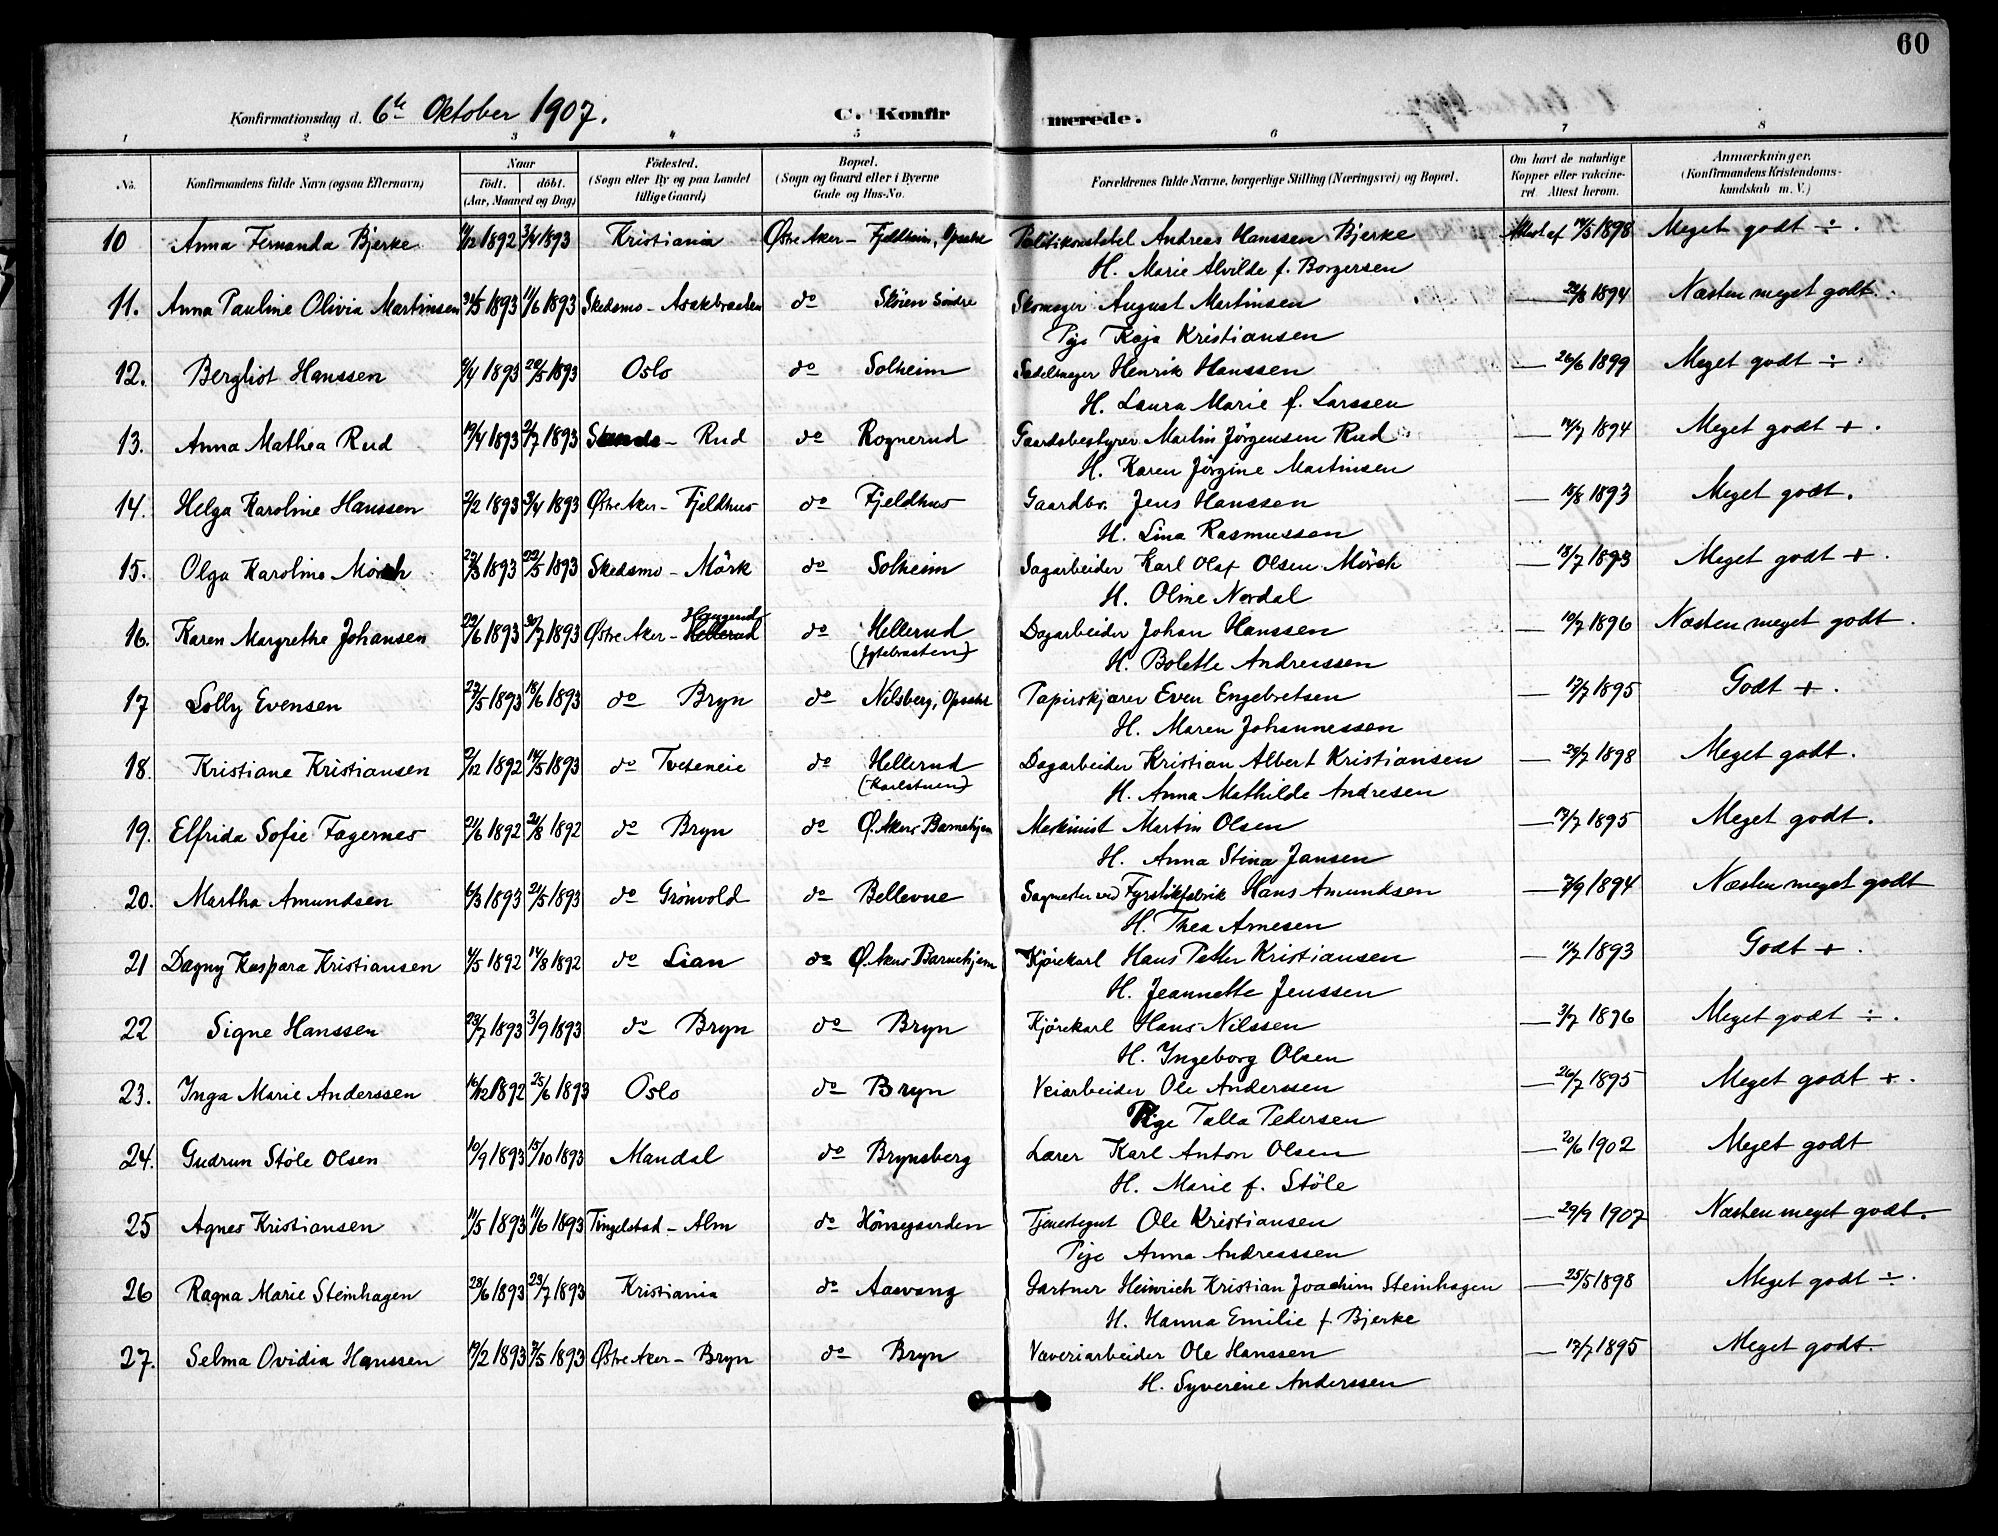 60
Konfirmationsdag d. 6te Oktober 1907.
C. Konfirmerede.
1 2 3 4 5 6 7 8
No. Konfirmandens fulde Navn (ogsaa Efternavn) Naar født. døbt. (Aar, Maaned og Dag) Fødested. (Sogn eller By og paa Landet tillige Gaard) Bopæl. (Sogn og Gaard eller i Byerne Gade og Hus-No. Forældrenes fulde Navne, borgerlige Stilling (Næringsvei) og Bopæl. Om havt de naturlige Kopper eller vakcineret. Attest herom. Anmærkninger. (Konfirmandens Kristendomskundskab m. V.)
10 Anna Fernanda Bjerke 1892 3/4 1893 Kristiania Østre Aker - Fjeldheim, Opsahl Politikonstabel Andreas Hanssen Bjerke Attest af 1898 Meget godt ÷.
H. Marie Alvilde f. Borgersen
11. Anna Pauline Olivia Martinsen 31/5 1893 11/6 1893 Skedsmo - Asakbraaten do Skøien Søndre Skomager August Martinsen — 1894 Næsten meget godt
Pige Kaja Kristiansen
12. Bergliot Hanssen 1893 1893 Oslo do Solheim Sadelmager Henrik Hanssen — 26/6 1899 Meget godt ÷.
H. Laura Marie f. Larssen
13. Anna Mathea Rud 19/4 1893 2/7 1893 Rud do Rognerud Gaardsbestyrer Martin Jørgensen Rud — 1894 Meget godt +.
H. Karen Jørgine Martinsen
14. Helga Karoline Hanssen 2/2 1893 3/4 1893 Østre Aker - Fjeldhus do Fjeldhus Gaardbr. Jens Hanssen — 1893 Meget godt.
H. Lina Rasmussen
15. Olga Karoline Mörch 1893 22/5 1893 Skedsmo - Mörk do Solheim Sagarbeider Karl Olaf Olsen Mörch — 18/7 1893 Meget godt +.
H. Oline Nordal
Haugerud
16. Karen Margrethe Johansen 22/6 1893 30/7 1893 Østre Aker - Hellerud do Hellerud Dagarbeider Johan Hanssen — 1896 Næsten meget godt.
(Jytebraaten) H. Bolette Andreassen
17 Lolly Evensen 27/5 1893 18/6 1893 do Bryn do Nilsberg, Opsahl Papirskjærer Even Engebretsen — 1895 Godt +.
H. Maren Johannessen
18. Kristiane Kristiansen 1892 14/5 1893 do Tveteneie do Hellerud Dagarbeider Kristian Albert Kristiansen — 29/7 1898 Meget godt.
(Karlstuen) H. Anna Mathilde Andresen
19. Elfrida Sofie Fagernes 21/6 1892 21/8 1892 do Bryn do Ø. Akers Barnehjem Maskinist Martin Olsen — 17/7 1895 Meget godt.
H. Anna Stina Jansen
20. Martha Amundsen 6/3 1893 21/5 1893 do Grönvold do Bellevue Sagmester ved Fyrstikfabrik Hans Amundsen — 1894 Næsten meget godt
H. Thea Arnesen
21 Dagny Kaspara Kristiansen 1892 14/8 1892 do Lian do Ø. Akers Barnehjem Kjørekarl Hans Petter Kristiansen — 11/7 1893 Godt +.
H. Jeannette Jenssen
22 Signe Hanssen 23/7 1893 3/9 1893 do Bryn do Bryn Kjørekarl Hans Nilssen — 3/7 1896 Meget godt ÷.
H. Ingeborg Olsen
23. Inga Marie Anderssen 16/12 1892 25/6 1893 Oslo do Bryn Veiarbeider Ole Anderssen — 26/7 1895 Meget godt +.
Pige Talla Pedersen
24. Gudrun Støle Olsen 10/9 1893 15/10 1893 Mandal do Brynsberg Lærer Karl Anton Olsen — 20/6 1902 Meget godt
H. Marie f. Støle
25 Agnes Kristiansen 11/5 1893 11/6 1893 Tingelstad - Alm do Hönsegaarden Tjenestegut Ole Kristiansen — 29/9 1907 Næsten meget godt.
Pige Anna Andreassen
26 Ragna Marie Steinhagen 28/6 1893 23/7 1893 Kristiania do Aasvang Gartner Heinrich Kristian Joachim Steinhagen — 25/5 1898 Meget godt ÷.
H. Hanna Emilie f Bjerke
27. Selma Ovidia Hanssen 1893 7/5 1893 Østre Aker - Bryn do Bryn Væveriarbeider Ole Hanssen — 17/7 1895 Meget godt.
H. Syverine Anderssen